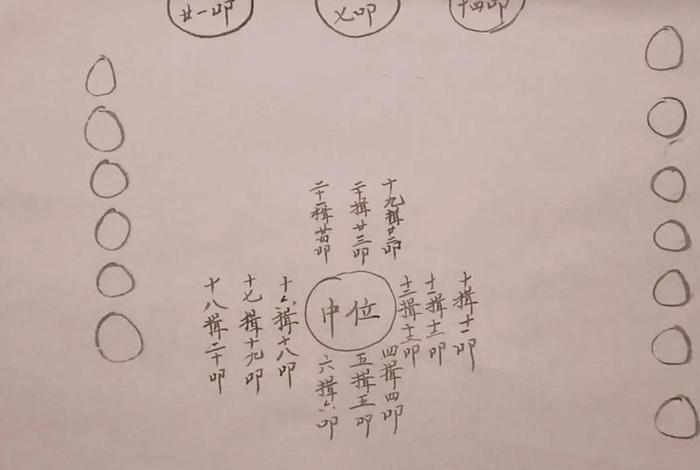 廿一叩
七叩
十四叩
十九揖廿二叩
二十揖廿三叩
二十一揖廿四叩
十揖十一叩
十一揖十二叩
十二揖十三叩
中位
十六揖十八叩
十七揖十九叩
十八揖二十叩
四揖四叩
五揖五叩
六揖六叩